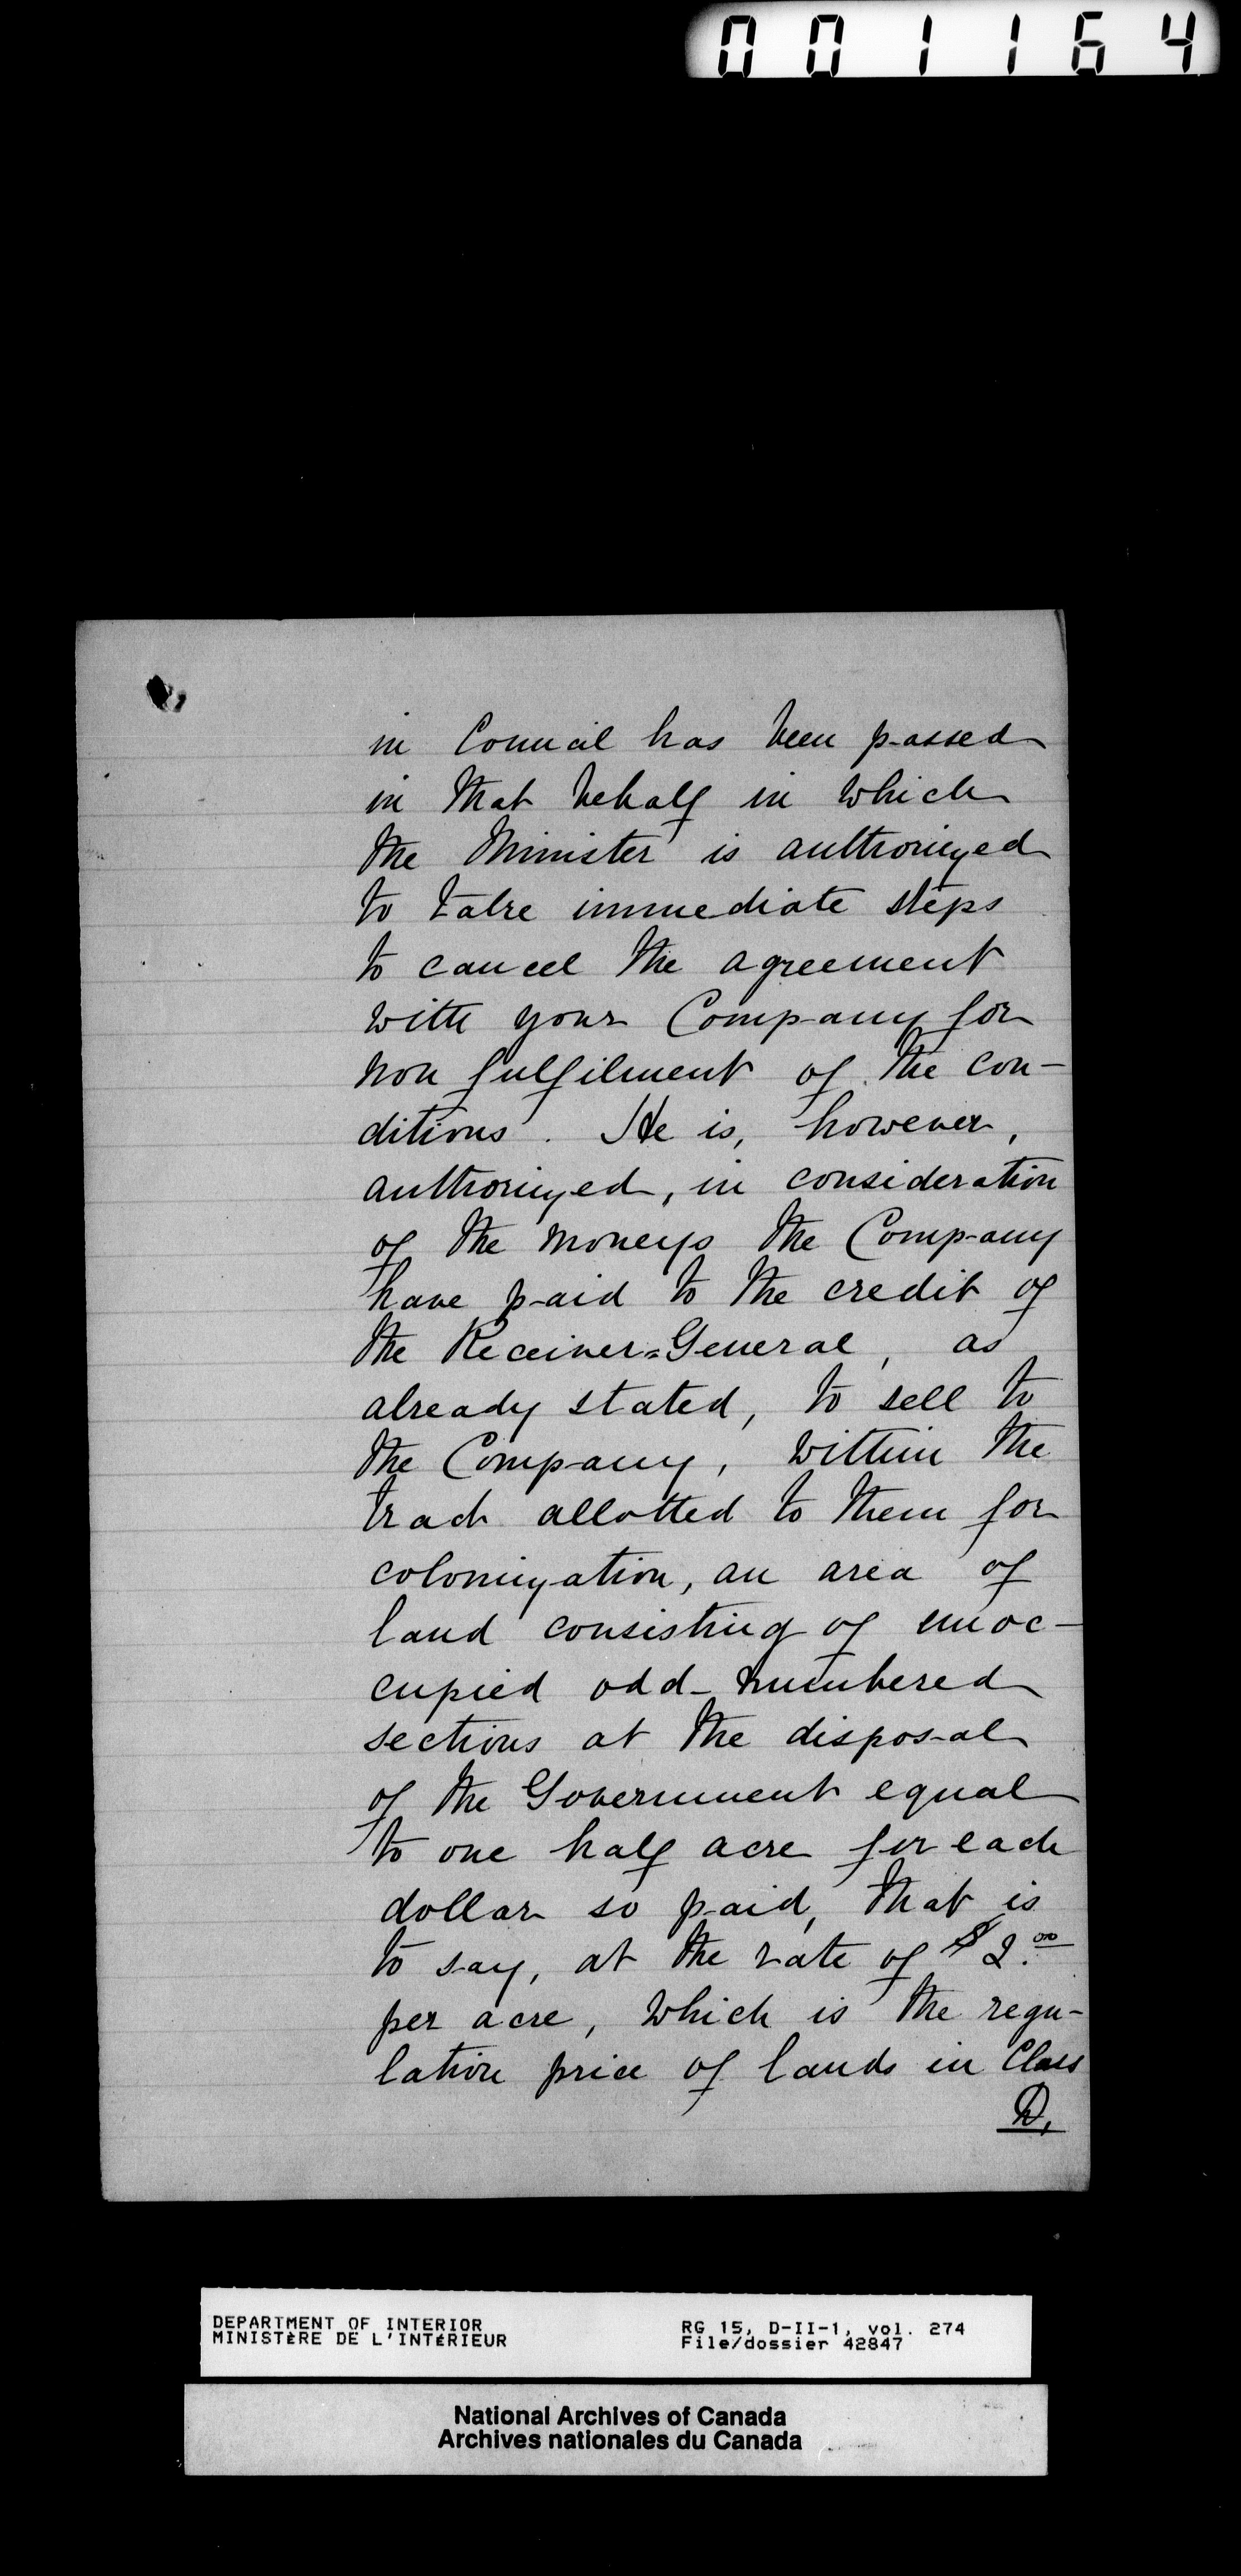 001164
in Council has been passed
in that behalf in which
the Minister is authorized
to take immediate steps
to cancel the agreement
with your Company for
non fulfilment of the con-
ditions. He is, however,
authorized, in consideration
of the moneys the Company
have paid to the credit of
the Receiver=General, as
already stated, to sell to
the Company, within the
tract allotted to them for
colonization, an area of
land consisting of unoc-
cupied odd-numbered
sections at the disposal
of the Government equal
to one half acre for each
dollar so paid, that is
to say, at the rate of $2.00
per acre, which is the regu-
lation price of lands in Class
D,
DEPARTMENT OF INTERIOR
MINISTÈRE DE L'INTÉRIEUR
RG 15, D-II-1, vol. 274
File/dossier 42847
National Archives of Canada
Archives nationales du Canada